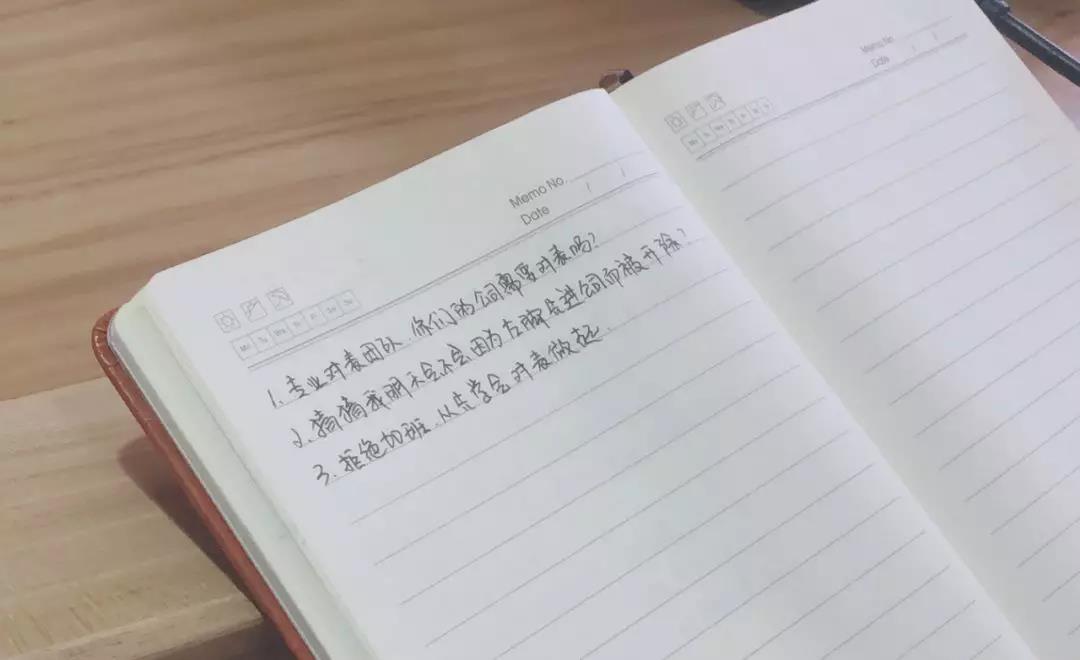 Memo No.
Date / /
Mo Tu We Th Fr Sa Su
1. 专业对表团队, 你们的公司需要对表吗?
2. 猜猜我明天会不会因为左脚先进公司而被开除?
3. 拒绝加班, 从先学会对表做起.
Memo No.
Date / /
Mo Tu We Th Fr Sa Su